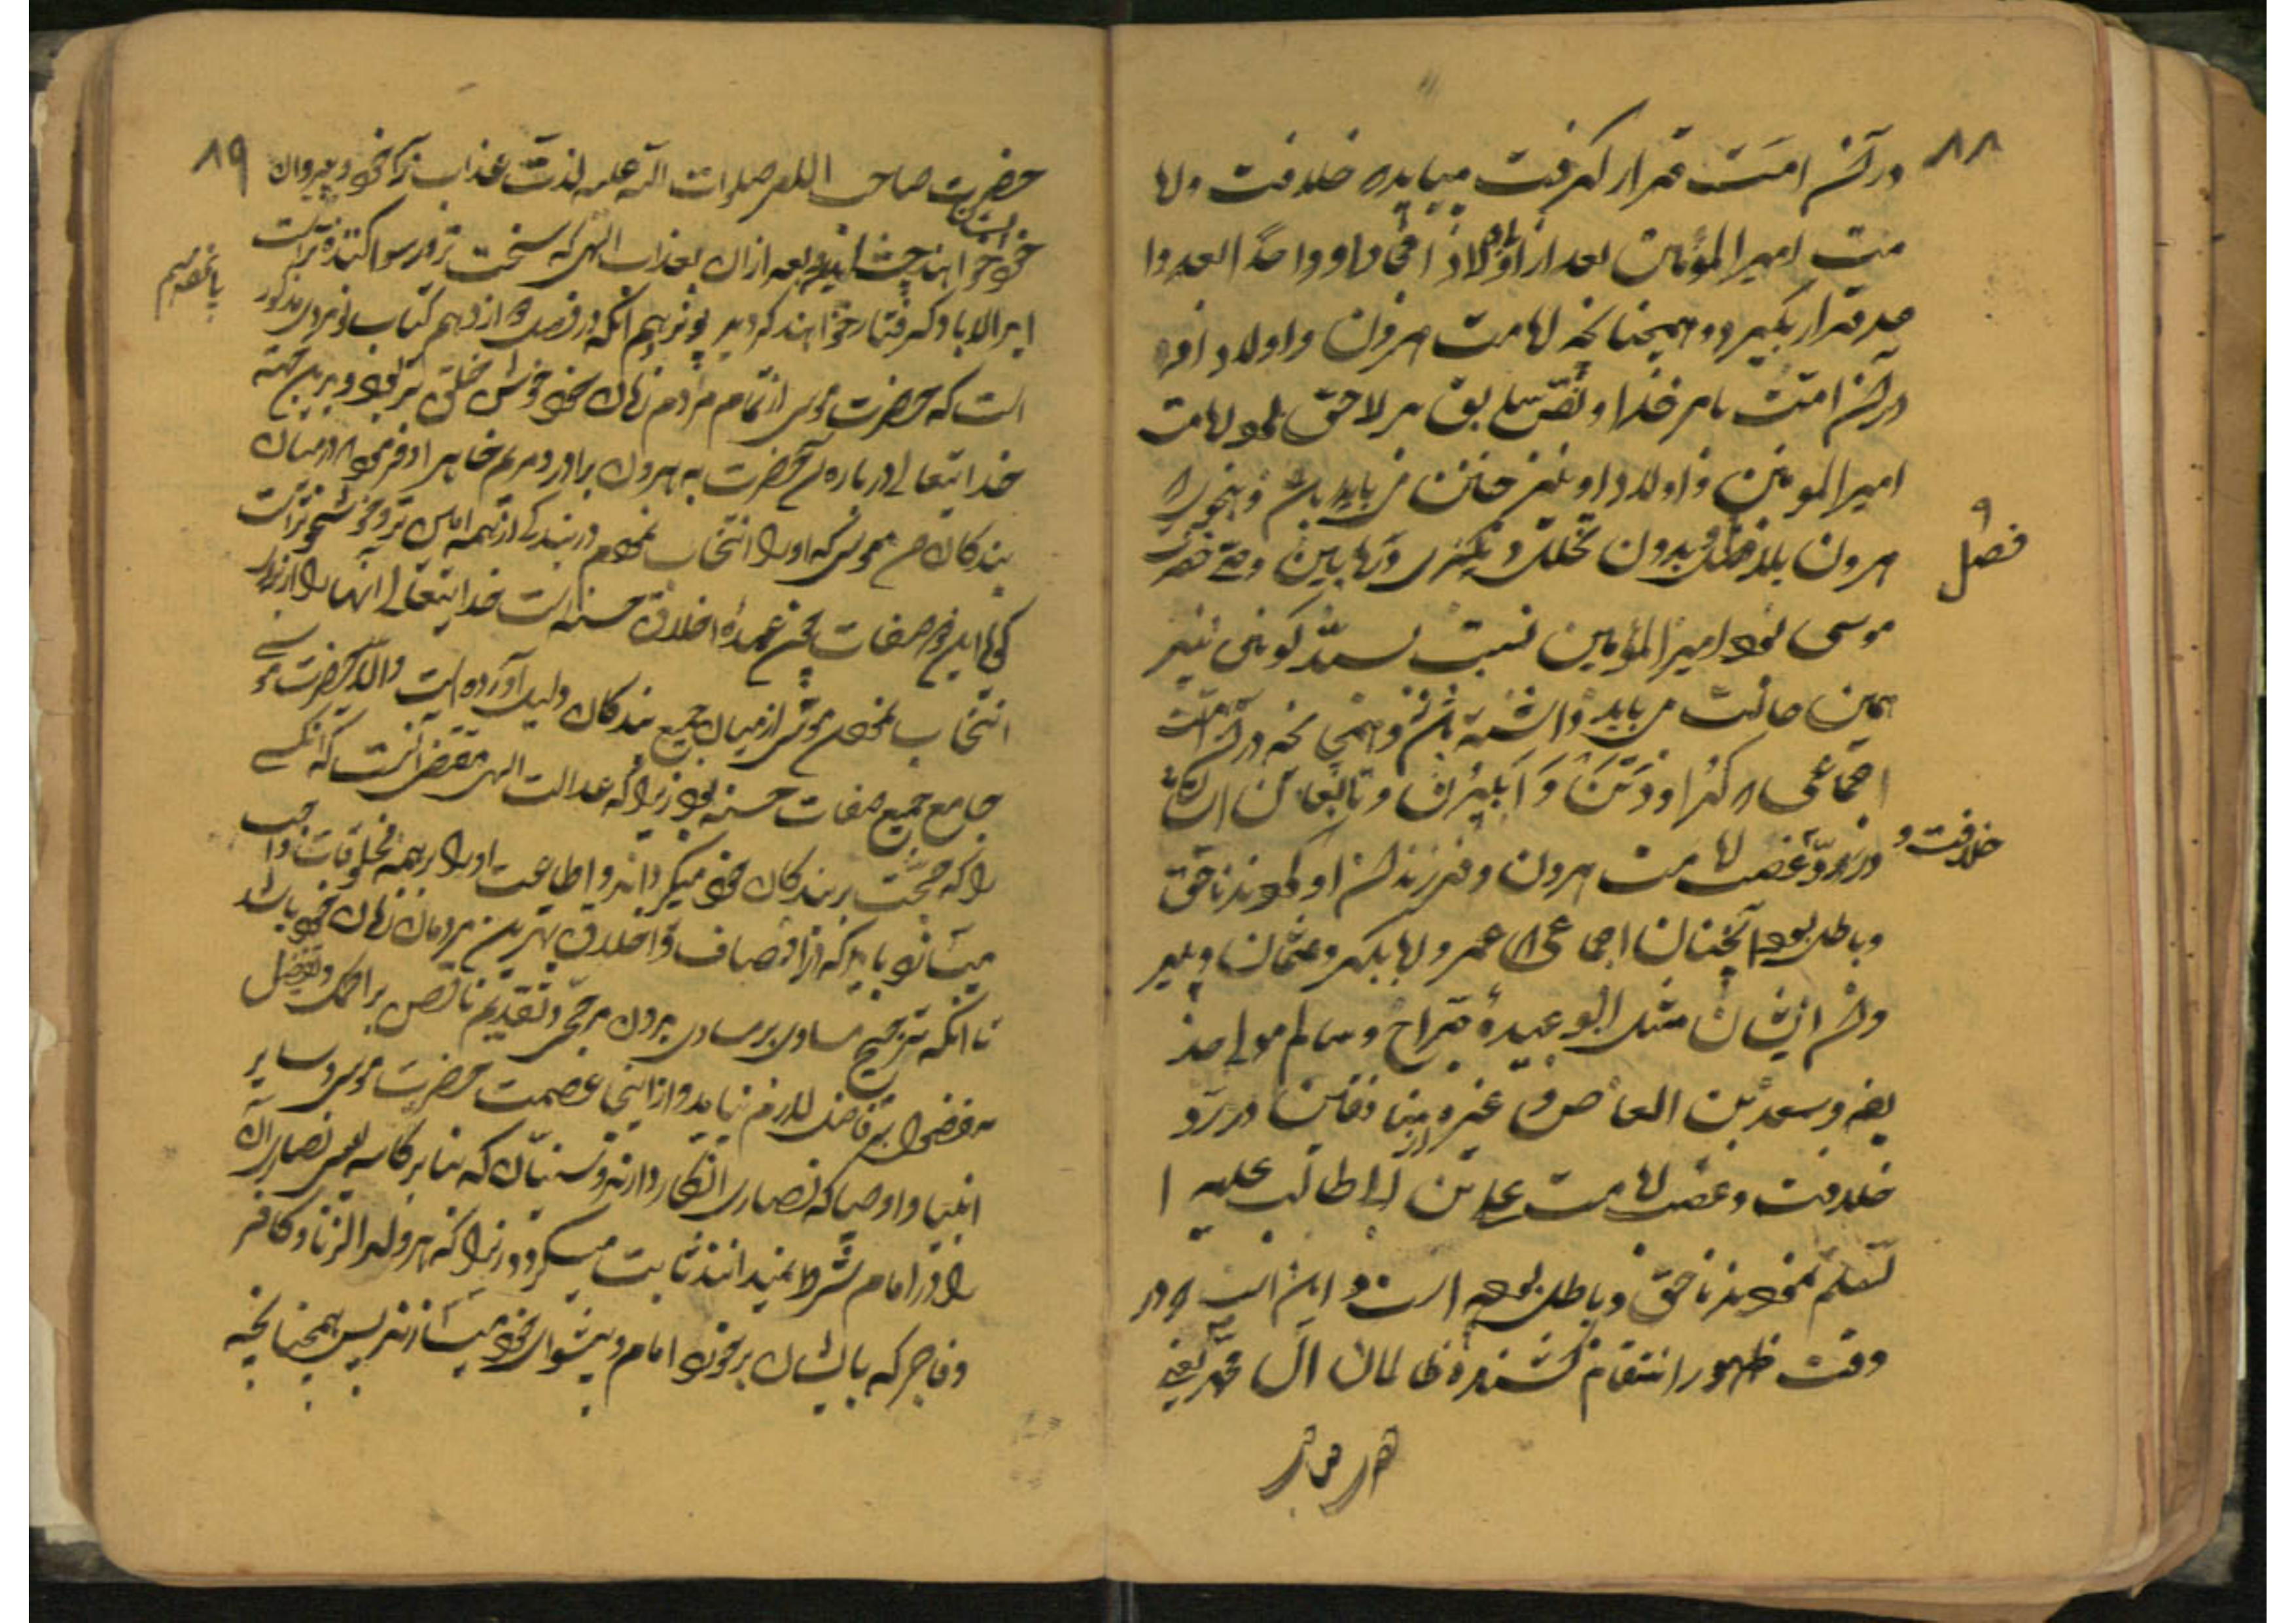 ۸۸
در آن امت قرار گرفت میباید خلافت و اما
مت امیرالمؤمنین بعد از او در اولاد او واحداً بعد وا
حد قرار بگیرد و همچنانچه امامت هرون و اولاد او
در آن امت بامر خدا و نص سابق بر لاحق بود امامت
امیرالمومنین و اولاد او نیز چنین می باید باشد و بنحوی که
هرون بلا فصل و بدون تخلل دیگری در مابین وصی حضرت
فصل
موسی بود امیرالمؤمنین نسبت بسید کونین نیز
همین حالت می باید داشته باشد و همچنانچه در آن امت
اجماعی که و دتن و ابیران و تابعان ایشان
خلافت و
در رد غصب امامت هرون و فرزندان او نمودند ناحق
و باطل بود آنچنان اجماعی که عمر و ابابکر و عثمان و
و امثال ایشان مثل ابو عبیده جراح و سالم مولی حذ
یفه و سعد بن العاص و غیره از منافقین در رد
خلافت و غصب امامت علی بن ابی طالب علیه ا
لسلم نمودند ناحق و باطل بوده است و این است که در
وقت ظهور انتقام کشنده ظالمان آل محمد یعنی
۸۹
حضرت صاحب العصر صلوات الله علیه لذت عذاب را خود و پیروان
خود خواهند چشید و بعد از آن بعذاب الهی که سخت تر و رسوا کننده تر است
ابد الاباد گرفتار خواهند گردید پانزدهم آنکه در فصل ۱۲ از دهم کتاب نومردی مذکور
پانزدهم
است که حضرت موسی از تمام مردم زمان خود خوش خلق تر بود و بر این جهته
خدایتعالی در باره آنحضرت به هرون برادر و مریم خواهر او فرمود که در میان
بندگان من موسی که او را انتخاب نمودم در بندگی از همه امین تر و خوشخوتر است
انتخاب نمودن موسی از میان جمیع بندگان دلیل آورده است و الا حضرت مو
جامع جمیع صفات حسنه بود زیرا که عدالت الهی مقتضی آنست که آنکسی
را که حجت بر بندگان خود میگرداند و اطاعت او را بر همه مخلوقات واجب
میسازد باید که در اوصاف و اخلاق بهترین مردمان زمان خود باشد
تا آنکه ترجیح مساوی بر مساوی بدون مرجحی و تقدیم ناقص بر اکمل و تفضیل
مفضول بر فاضل لازم نیاید و از اینجا عصمت حضرت موسی و سایر
انبیا و اوصیا که نصاری انکار دارند و سنیان که بنا بر کاسه لیسی نصاری آن
را در امام شرط نمیدانند ثابت میگردد زیرا که هر ولد الزنا و کافر
و فاجر که بایشان برخورد امام و پیشوای خود میسازند پس همچنانچه